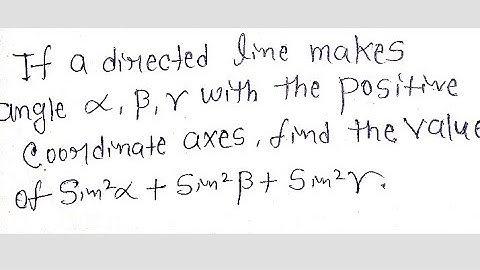 If a directed line makes
angle α, β, γ with the positive
Coordinate axes, find the value
of Sin²α + Sin²β + Sin²γ.